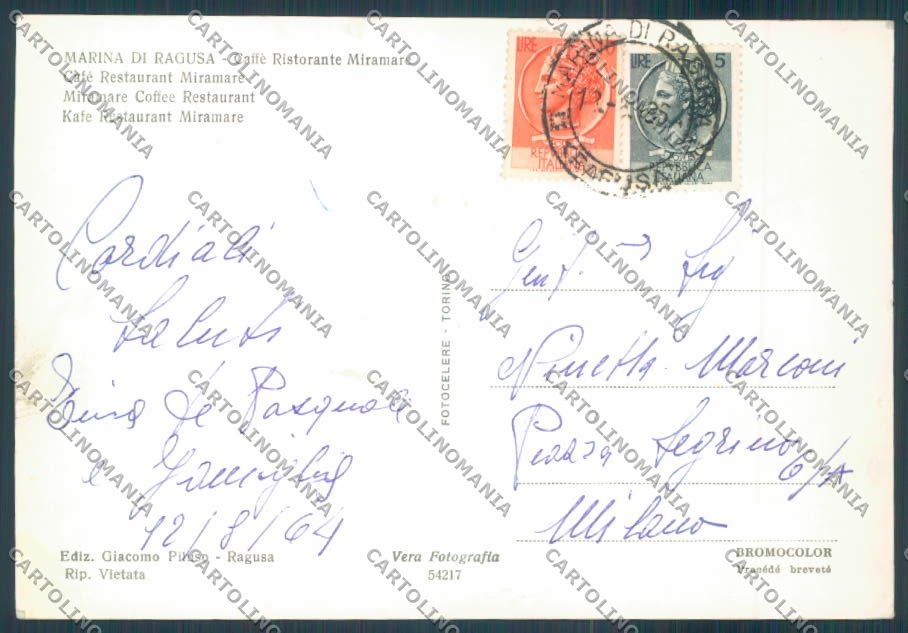 MARINA DI RAGUSA - Caffè Ristorante Miramare
Café Restaurant Miramare
Miramare Coffee Restaurant
Kafe Restaurant Miramare
LIRE
REPUBBLICA
ITALIANA
LIRE 5
REPUBBLICA
ITALIANA
MARINA DI RAGUSA
RAGUSA
Cordiali
Saluti
De Pasquale
e Famiglia
12/8/64
Gent. Sig
Ninetta Marconi
Piazza Segrino 6/A
Milano
FOTOCELERE - TORINO
Ediz. Giacomo - Ragusa
Rip. Vietata
Vera Fotografia
54217
BROMOCOLOR
Procédé breveté
CARTOLINOMANIA